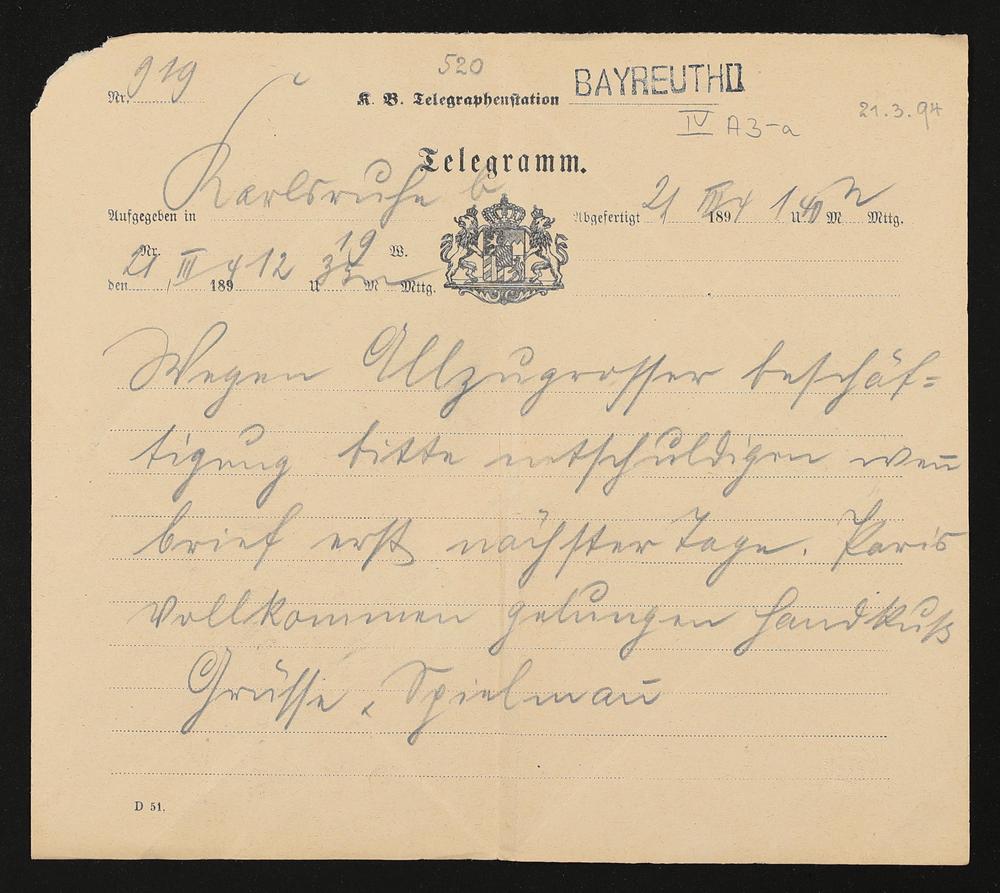 520
Nr. 919
K. B. Telegraphenstation BAYREUTH II
IV A3-a
21.3.94
Telegramm.
Aufgegeben in Karlsruhe b
Abgefertigt 21 III 1894 1 U 40 M n Mttg.
Nr. 19 W.
den 21 / III 1894 12 U 35 M n Mttg.
Wegen Allzugrosser beschäf=
tigung bitte entschuldigen wen̄
brief erst nächster Tage. Paris
vollkommen gelungen Handkuß
Grüsse, Spielman̄
D 51.